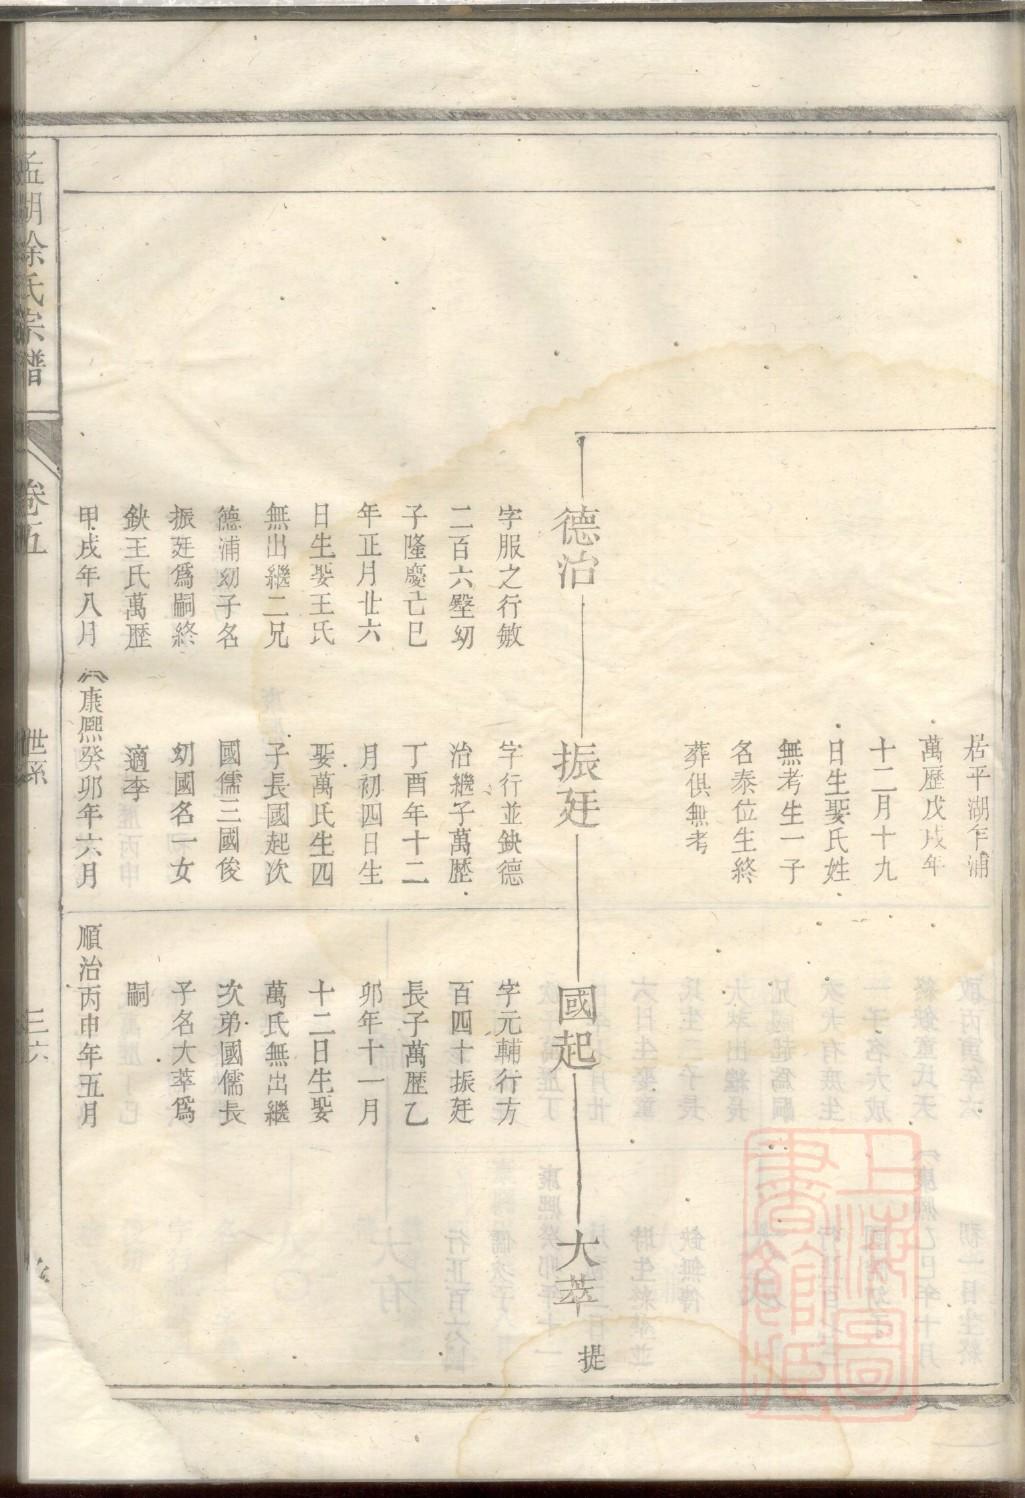 居平湖乍浦
萬歷戊戌年
十二月十九
日生娶氏姓
無考生一子
名泰位生終
葬俱無考
德治
字服之行敏
二百六壂幼
子隆慶己巳
年正月廿六
日生娶王氏
無出繼二兄
德浦幼子名
振廷爲嗣終
鈌王氏萬歷
甲戌年八月
振廷
字行並鈌德
治繼子萬歷
丁酉年十二
月初四日生
娶萬氏生四
子長國起次
國儒三國俊
幼國名一女
適李
康熙癸卯年六月
國起
字元輔行方
百四十振廷
長子萬歷乙
卯年十一月
十二日生娶
萬氏無出繼
次弟國儒長
子名大萃爲
嗣
順治丙申年五月
大萃
提
湖徐氏宗譜
卷五
世系
三六
上海圖書館藏